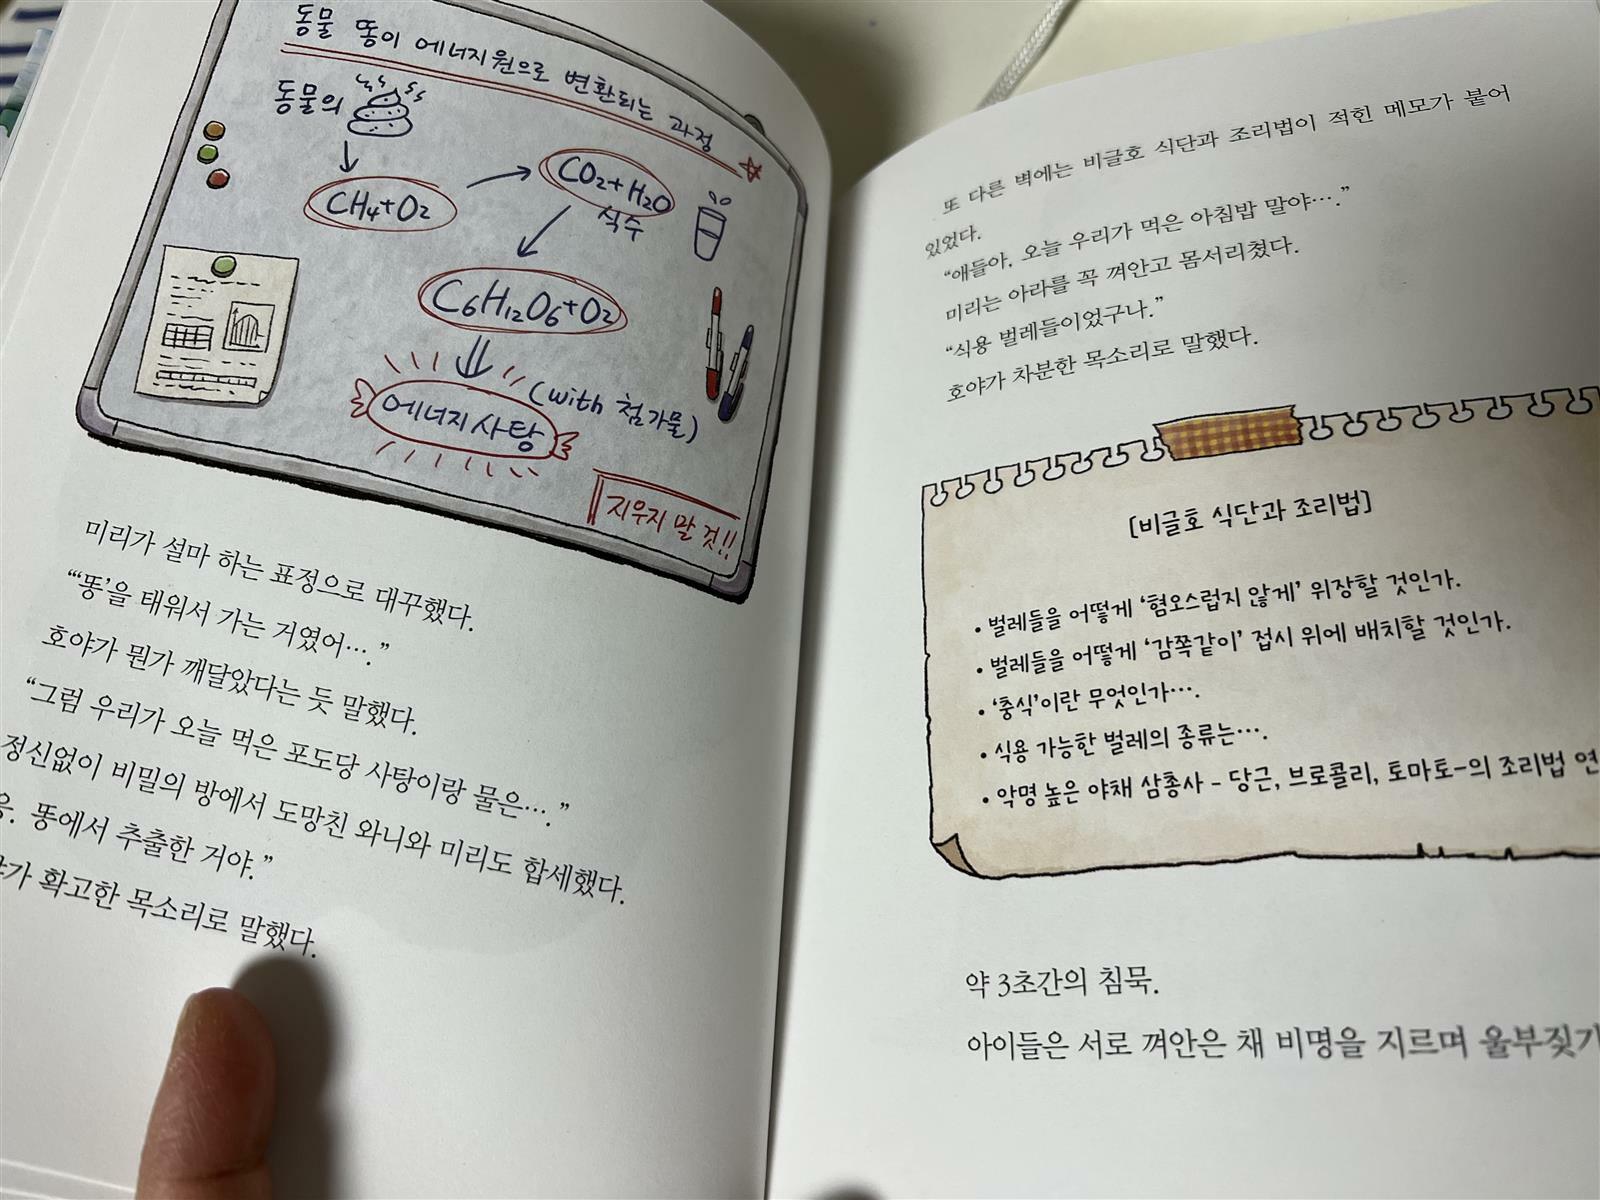 동물 똥이 에너지원으로 변환되는 과정
동물의
CH₄+O₂
CO₂+H₂O
식수
C₆H₁₂O₆+O₂
(with 첨가물)
에너지사탕
지우지 말 것!!
미리가 설마 하는 표정으로 대꾸했다.
“‘똥’을 태워서 가는 거였어….”
호야가 뭔가 깨달았다는 듯 말했다.
“그럼 우리가 오늘 먹은 포도당 사탕이랑 물은….”
정신없이 비밀의 방에서 도망친 와니와 미리도 합세했다.
똥에서 추출한 거야.”
확고한 목소리로 말했다.
또 다른 벽에는 비글호 식단과 조리법이 적힌 메모가 붙어
있었다.
“얘들아, 오늘 우리가 먹은 아침밥 말야….”
미리는 아라를 꼭 껴안고 몸서리쳤다.
“식용 벌레들이었구나.”
호야가 차분한 목소리로 말했다.
[비글호 식단과 조리법]
• 벌레들을 어떻게 ‘혐오스럽지 않게’ 위장할 것인가.
• 벌레들을 어떻게 ‘감쪽같이’ 접시 위에 배치할 것인가.
• ‘충식’이란 무엇인가….
• 식용 가능한 벌레의 종류는….
• 악명 높은 야채 삼총사 - 당근, 브로콜리, 토마토-의 조리법 연
약 3초간의 침묵.
아이들은 서로 껴안은 채 비명을 지르며 울부짖기